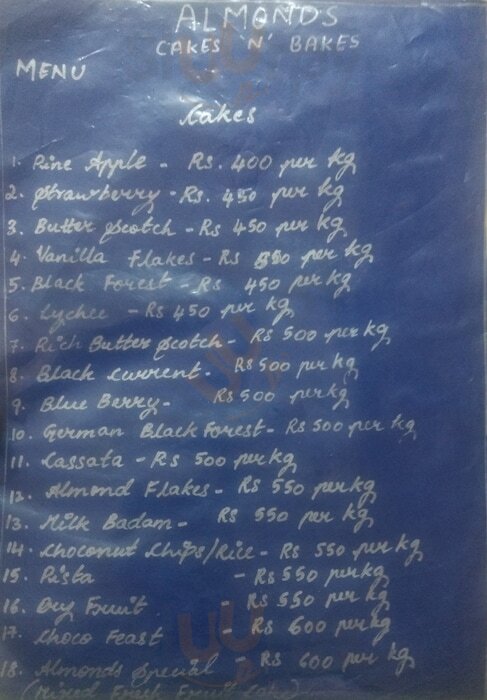 ALMONDS
CAKES 'N' BAKES
MENU
Cakes
1. Pine Apple - Rs. 400 per kg
2. Strawberry - Rs. 450 per kg
3. Butter Scotch - Rs 450 per kg
4. Vanilla Flakes - Rs 550 per kg
5. Black Forest - Rs 450 per kg
6. Lychee - Rs 450 per kg
7. Rich Butter Scotch - Rs 500 per kg
8. Black Current - Rs 500 per kg
9. Blue Berry - Rs 500 per kg
10. German Black Forest - Rs 500 per kg
11. Cassata - Rs 500 per kg
12. Almond Flakes - Rs 550 per kg
13. Milk Badam - Rs 550 per kg
14. Choconut Chips/Rice - Rs 550 per kg
15. Pista - Rs 550 per kg
16. Dry Fruit - Rs 550 per kg
17. Choco Feast - Rs 600 per kg
18. Almonds Special - Rs 600 per kg
(Mixed Fresh Fruit Cake)